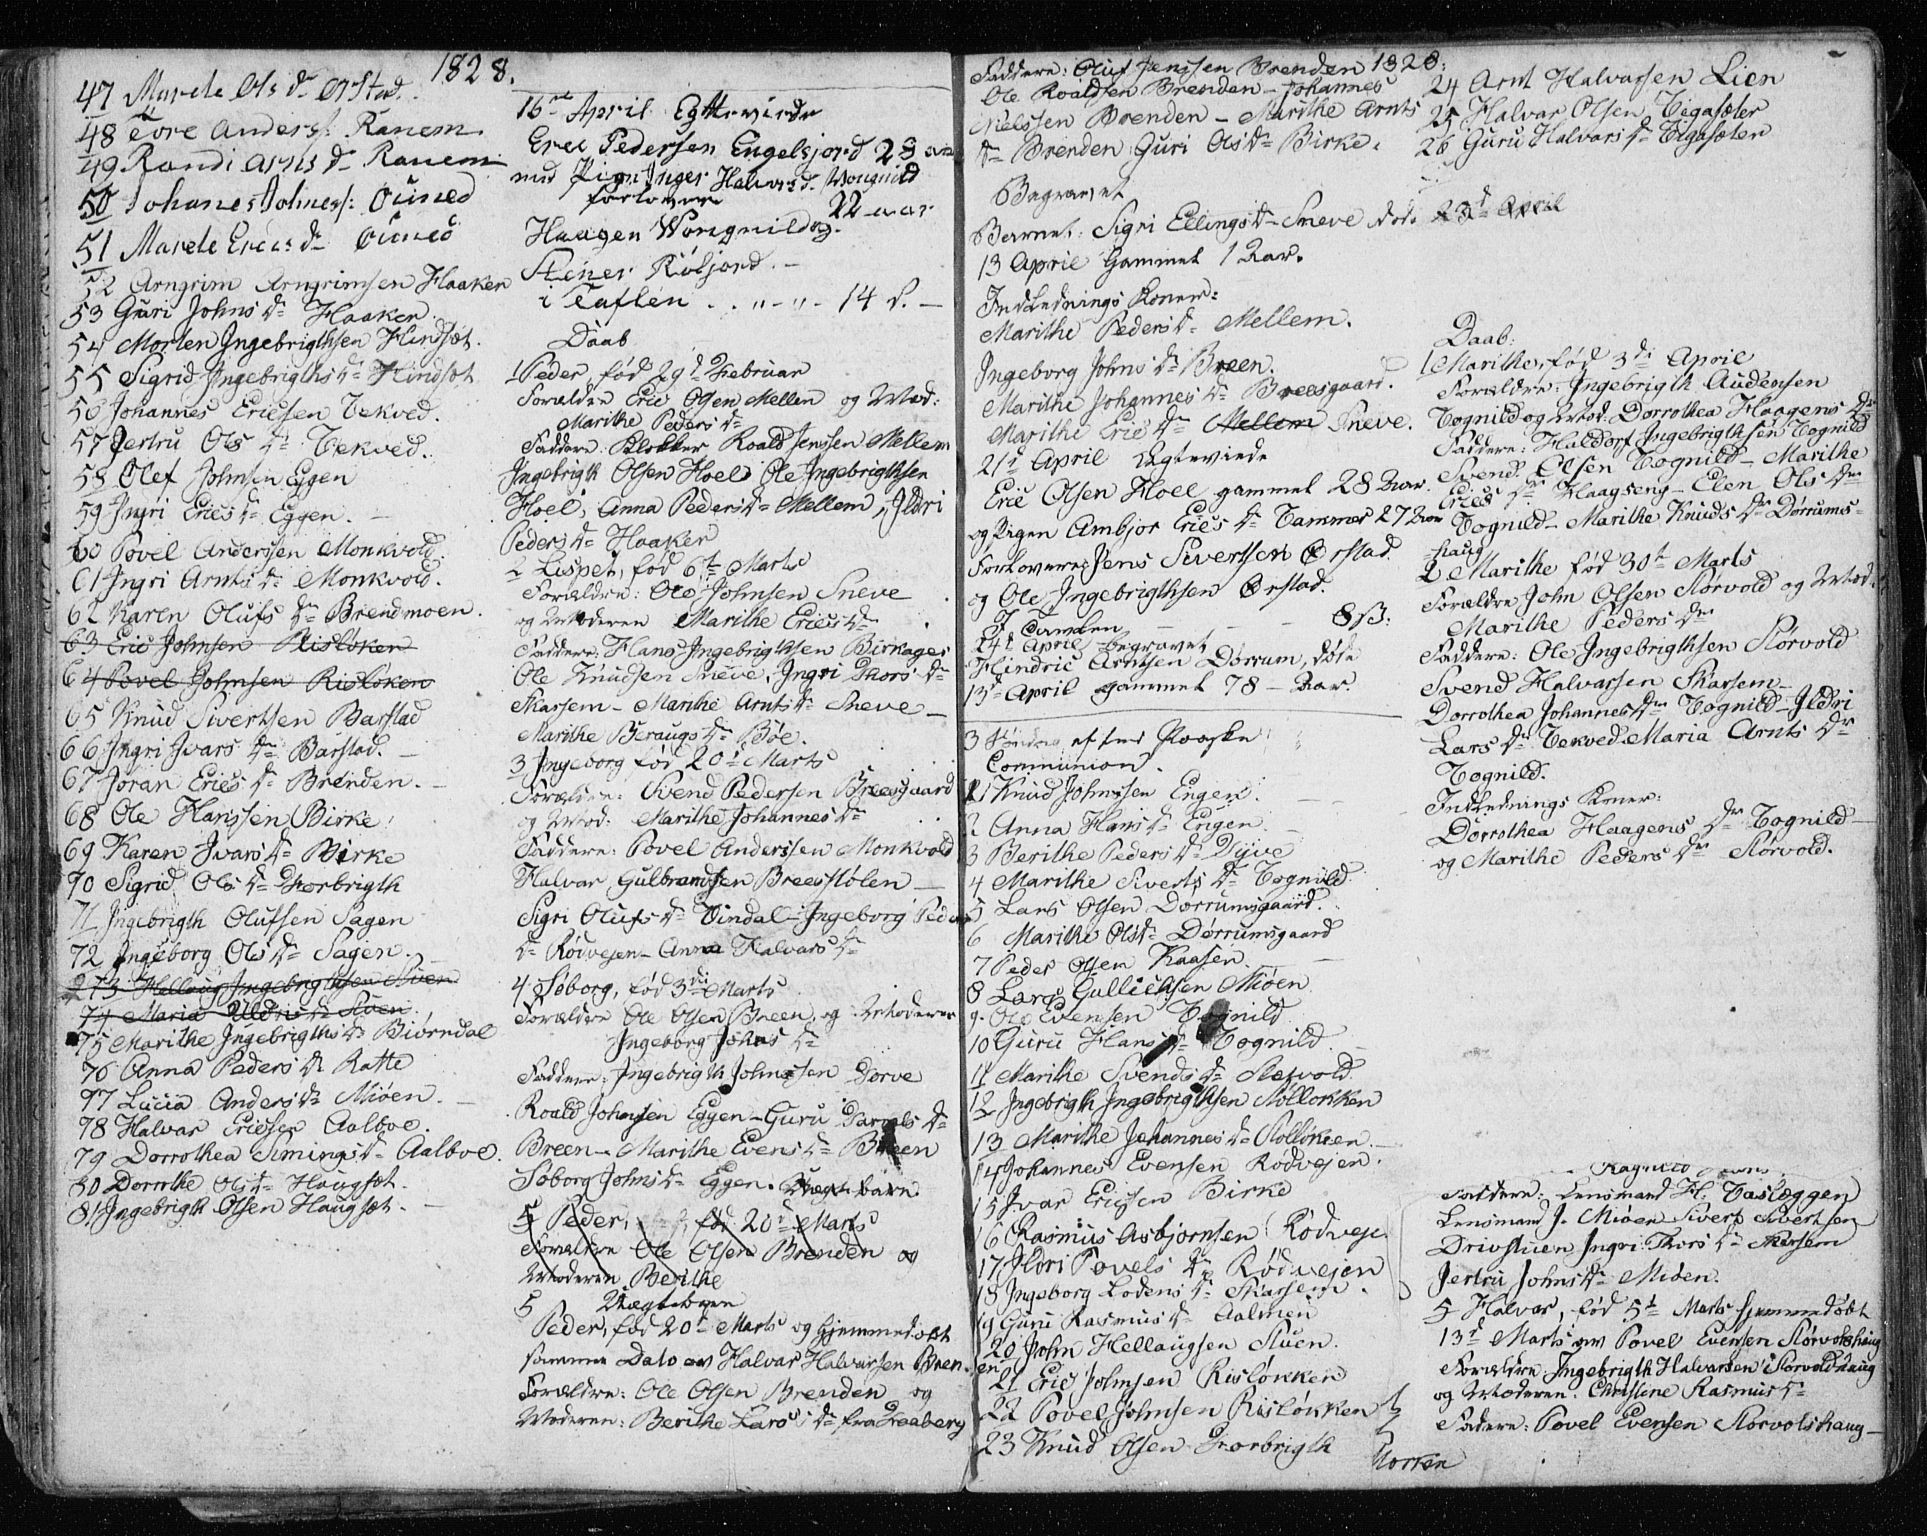 1828.
47 Marele Ols dr Ørstad.
48 Tore Anders: Ranem
49 Randi Arns dr Ranem
50 Johanes Johnes: Ouned
51 Marele Erics dr Ouned
52 Arngrim Arngrimsen Haaker
53 Guri Johns dr Haaker.
54 Morten Ingebrigthsen Hindsæt.
55 Sigrid Ingebrigths dr Hindsæt
56 Johannes Ericsen Tekved.
57 Jertru Ols dr Tekved.
58 Olef Johnsen Eggen
59 Ingri Erics dr Eggen.
60 Povel Anderssen Monkvold.
61 Ingri Arnts dr Monkvold.
62 Karen Olufs dr Brendmoen.
63 Eric Johnsen Risløken
64 Povel Johnsen Risløken
65 Knud Sivertsen Barstad
66 Ingri Ivars dr Barstad.
67 Joran Erics dr Brenden.
68 Ole Hanssen Birke
69 Karen Ivars dr Birke
70 Sigrid Ols dr Forbrigth
71 Ingebrigth Olufsen Sagen
72 Ingeborg Ols dr Sagen.
73 Hellaug Ingebrigthsen Stuen
74 Maria Uldris dr Stuen
75 Marithe Ingebrigths dr Biørndal
76 Anna Peders dr Ratte
77 Lucia Anders dr Miøen.
78 Halvar Ericsen Aalboe.
79 Dorrothea Simings dr Aalboe.
80 Dorrothe Ols dr Haugsæt.
81 Ingebrigth Olsen Haugsæt.
16de April Egtteviede
Eric Pedersen Engelsjord 28 aar
med Pigen Inger Halvors d. Wongnild
forlovere 22 aar
Haagen Wongnild og
Stener Røljord.
i Taflen . . " - " - 14 s.
Daab
1 Peder, fød 29d Februar
Forældre Eric Olsen Mellem og Mod:
Marithe Peders dr
Faddere: Klokker Roald Jenssen Mellem
Ingebrigth Olsen Hoel Ole Ingebrigthsen
Hoel, Anna Peders dr Mellem, Ildri
Peders dr Haaker
2 Lispet, fød 6te Marts
Forældre: Ole Johnsen Sneve
og Moderen Marithe Erics dr
Faddere: Hans Ingebrigthsen Birkager
Ole Knudsen Sneve, Ingri Thors dr
Skarsem - Marithe Arnts dr Sneve
Marithe Beraugs dr Bøe.
3 Ingeborg fød 20d Marts
Forældre: Svend Pedersen Breesgaard
og Mod: Marithe Johannes dr
Faddere: Povel Anderssen Monkvold
Halvar Gulbrandsen Breestølen
Sigri Olufs dr Vindal Ingeborg Peders
dr Rødvejen - Anna Halvars dr
4 Søborg, fød 3di Marts
Forældre Ole Olsen Breen, og Moderen
Ingeborg Johns dr
Faddere: Ingebrigth Johnssen Dorve
Roald Johnsen Eggen - Guru
Breen - Marithe Evens dr Breen
Søborg Johns dr Eggen. Uægte barn
5 Peder, fød 20d Marts
Forældre Ole Olsen Brenden og
Moderen Berithe
5 Uægteborn
Peder, fød 20d Marts og hjemmedøbt
samme Dato av Halvar Halvarsen Breen
Forældre: Ole Olsen Brenden og
Moderen: Berithe Lars dr fra Fraaberg
Faddere: Oluf Jenssen Brenden 1828.
Ole Roaldsen Brenden - Johannes
Nielssen Brenden - Marithe Arnts
dr Brenden Guri Ols dr Birke.
Begravet
Barnet: Sigri Ellings dr Sneve døde
13 April Gammel 1 Aar.
Indlednings Koner:
Marithe Peders dr Mellem.
Ingeborg Johns dr Breen.
Marithe Johannes dr Breesgaard.
Marithe Erics dr Mellem Sneve.
21d April Ægteviede
Eric Olsen Hoel gammel 28 Aar
og Pigen Ambjør Erics dr Tammer 27 Aar
Forlovere: Jens Sivertsen Ørstad
og Ole Ingebrigthsen Ørstad.
I Tavlen - - - 8 s:
24d April Begravet
Hindric Arntsen Dørrum, døde
13d April gammel 78 - Aar.
3 Søndag efter Paaske
Communion.
1 Knud Johnssen Engen.
2 Anna Hans dr Engen
3 Berithe Peders dr Dyve
4 Marithe Siverts dr Tognild
5 Lars Olsen Dørrumsgaard.
6 Marithe Ols dr Dørrumsgaard
7 Peder Olsen Kaasen.
8 Lars Gullichsen Miøen
9. Ole Evensen Tognild
10 Guru Hans dr Tognild.
11 Marithe Svends dr Størvold
12 Ingebrigth Ingebrigthsen Stølløkken
13 Marithe Johannes dr Stølløkken
14 Johannes Evensen Rødvejen.
15 Ivar Ericsen Birke
16 Rasmus Asbjørnsen Rødveje
17 Ildri Povels dr Rødvejen
18 Ingeborg Lodens dr Skarsem.
19 Guru Rasmus dr Aalmen
20 John Hellaugsen Stuen.
21 Eric Johnsen Risløkken
22 Povel Johnsen Risløkken
23 Knud Olsen Forbrigth
24 Arnt Halvarsen Lien
25 Halvar Olsen Tegasæter
26 Guru Halvars dr Tegasæter
23d April
Daab:
1 Marithe, fød 3di April
Forældre: Ingebrigth Audensen
Tognild og Mod. Dorrothea Haagens dr
Faddere: Haldorf Ingebrigthsen Tognild
Svend Olsen Tognild - Marithe
Erics dr Haagseng - Elen Ols dr
Tognild - Marithe Knuds dr Dørrums-
haug
2 Marithe fød 30t Marts
Forældre John Olsen Størvold og Mod.
Marithe Peders dr
Faddere: Ole Ingebrigthsen Størvold
Svend Halvarsen Skarsem
Dorrothea Johannes dr Tognild - Ildri
Lars dr Tekved Maria Arnts dr
Tognild.
Indlednings Koner:
Dorrothea Haagens dr Tognild
og Marithe Peders dr Størvold.
Ragnild
Faddere: Lensmand H. Vaslæggen
Lensmand J. Miøen Sivert Sivertsen
Drivstuen Ingri Thors dr Skarsem
Jertru Johns dr Miøen.
5 Halvar, fød 5t Marts hjemmedøbt
13d Marts av Povel Evensen Størvolshaug
Forældre Ingebrigth Halvarsen Størvoldshaug
og Moderen. Christine Rasmus dr
Faddere: Povel Evensen Størvolshaug